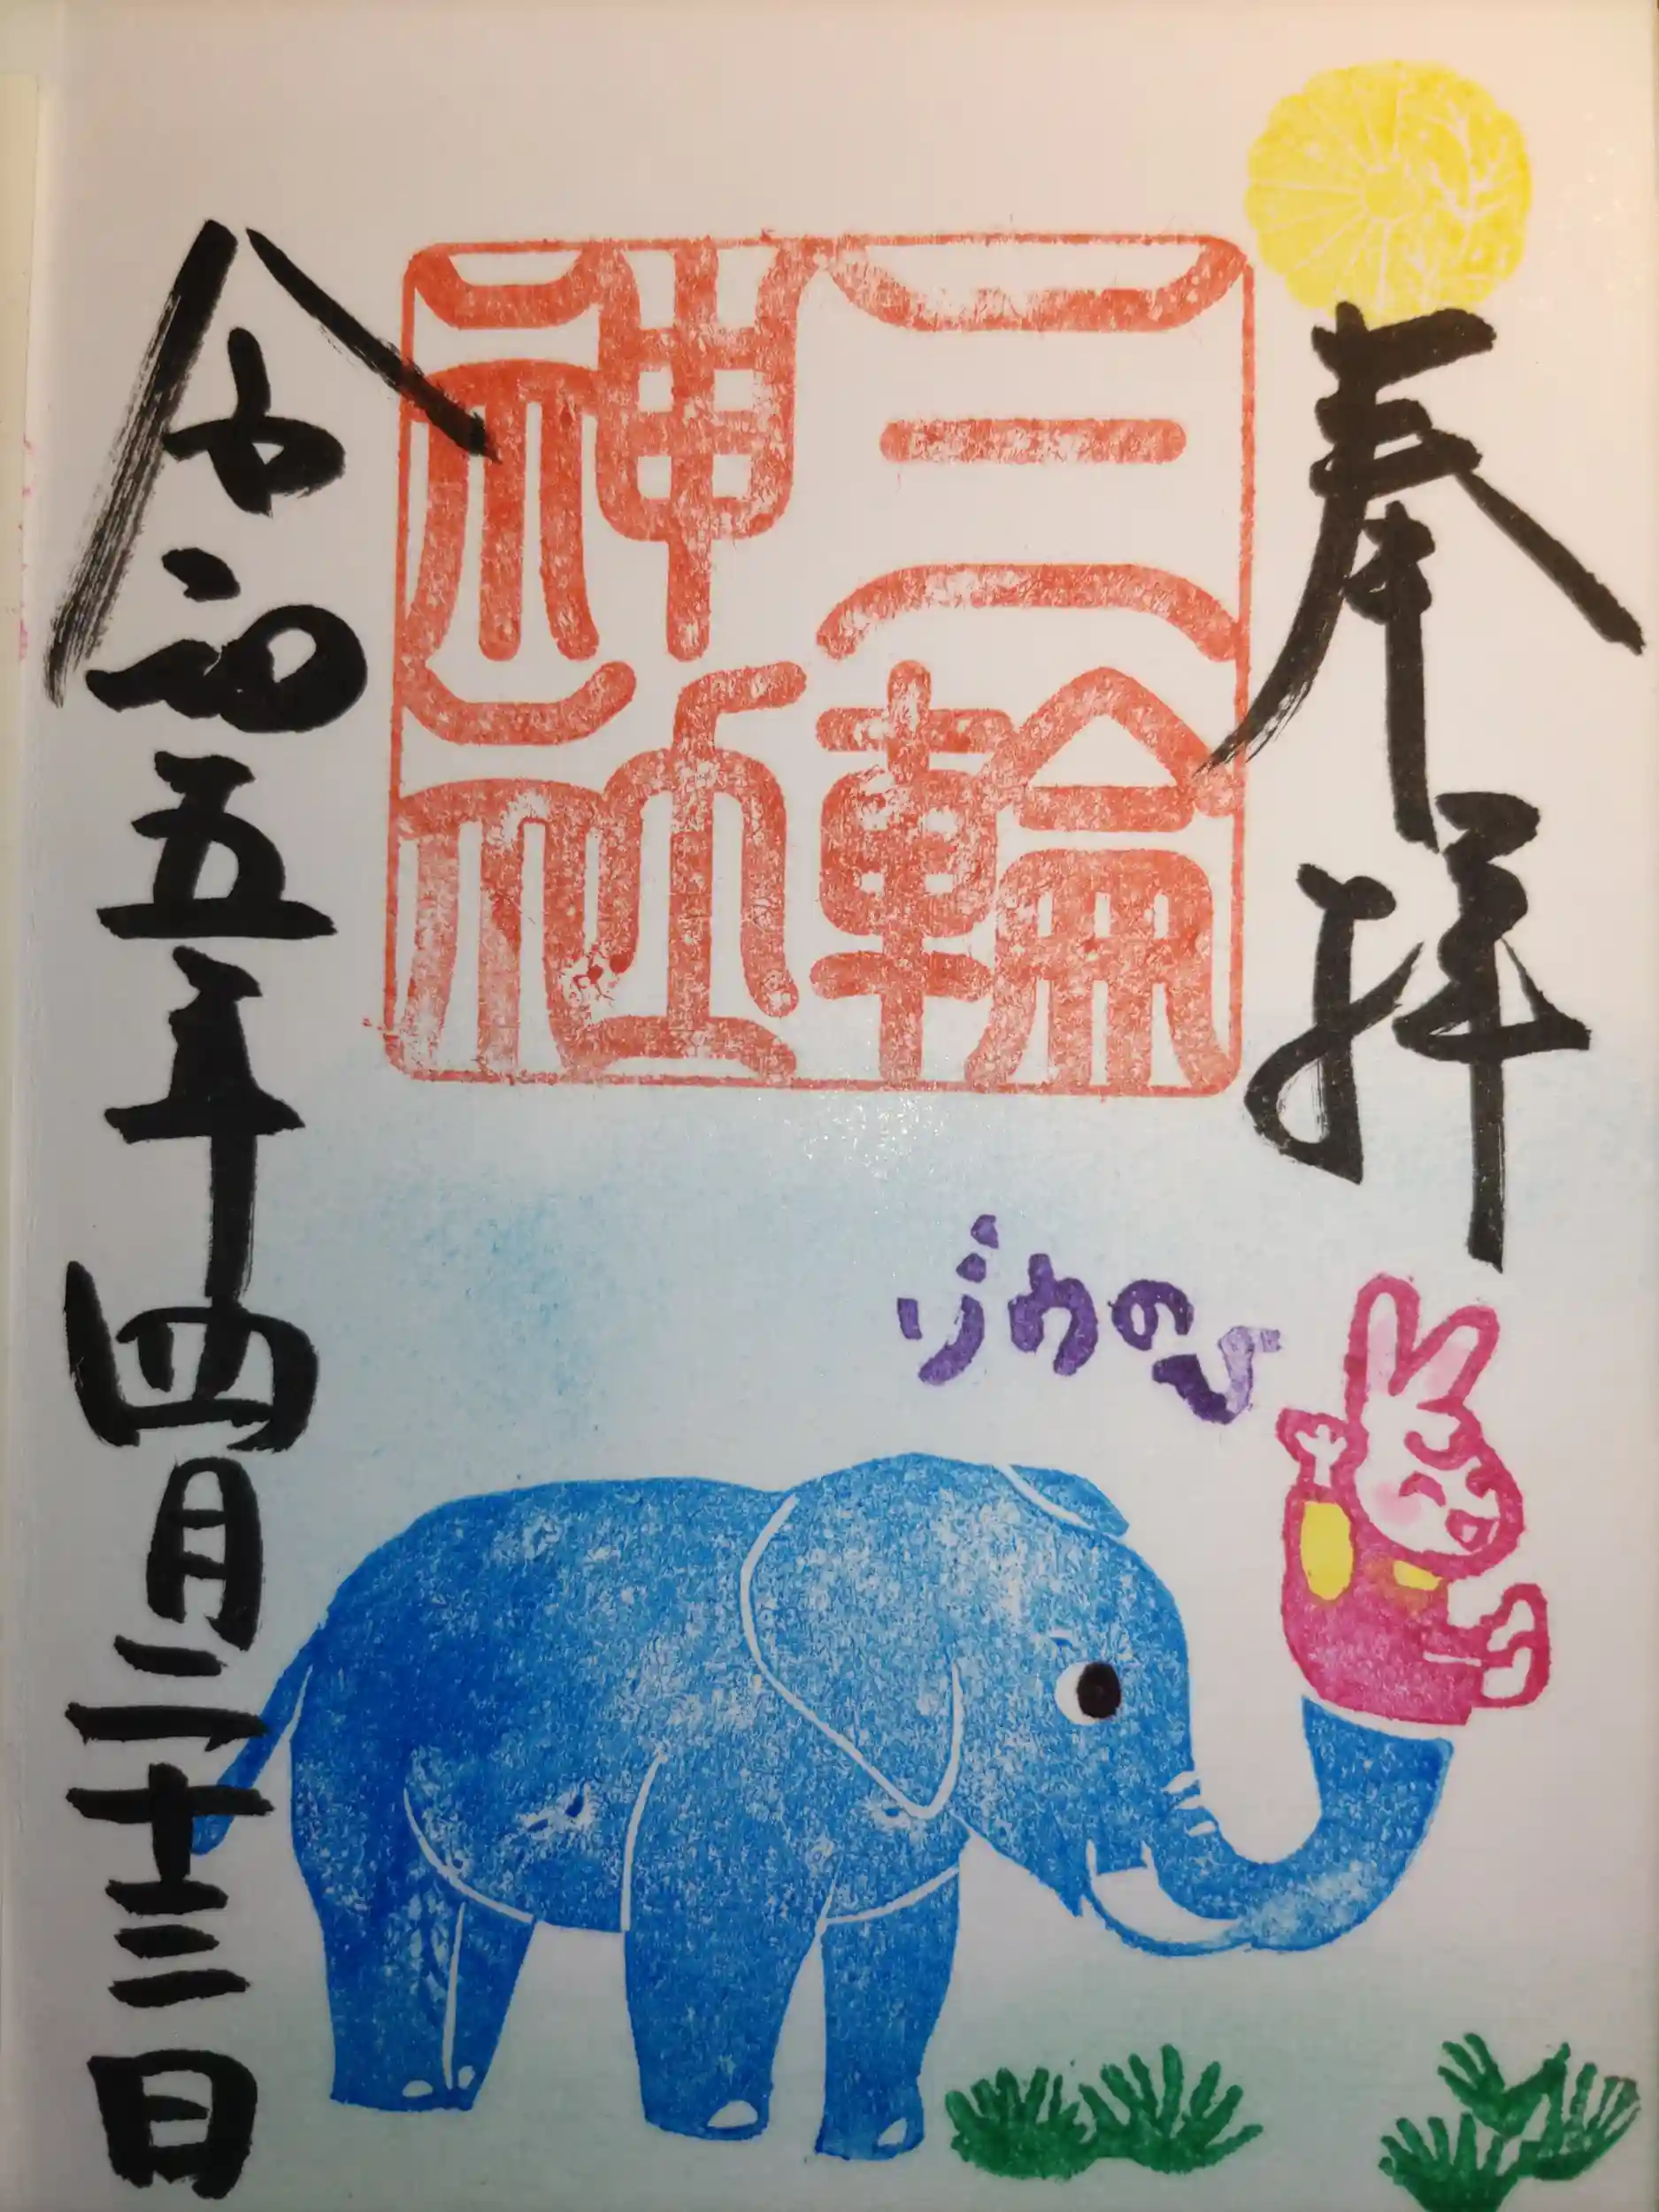 奉拝
三輪
神社
令和五年四月二十三日